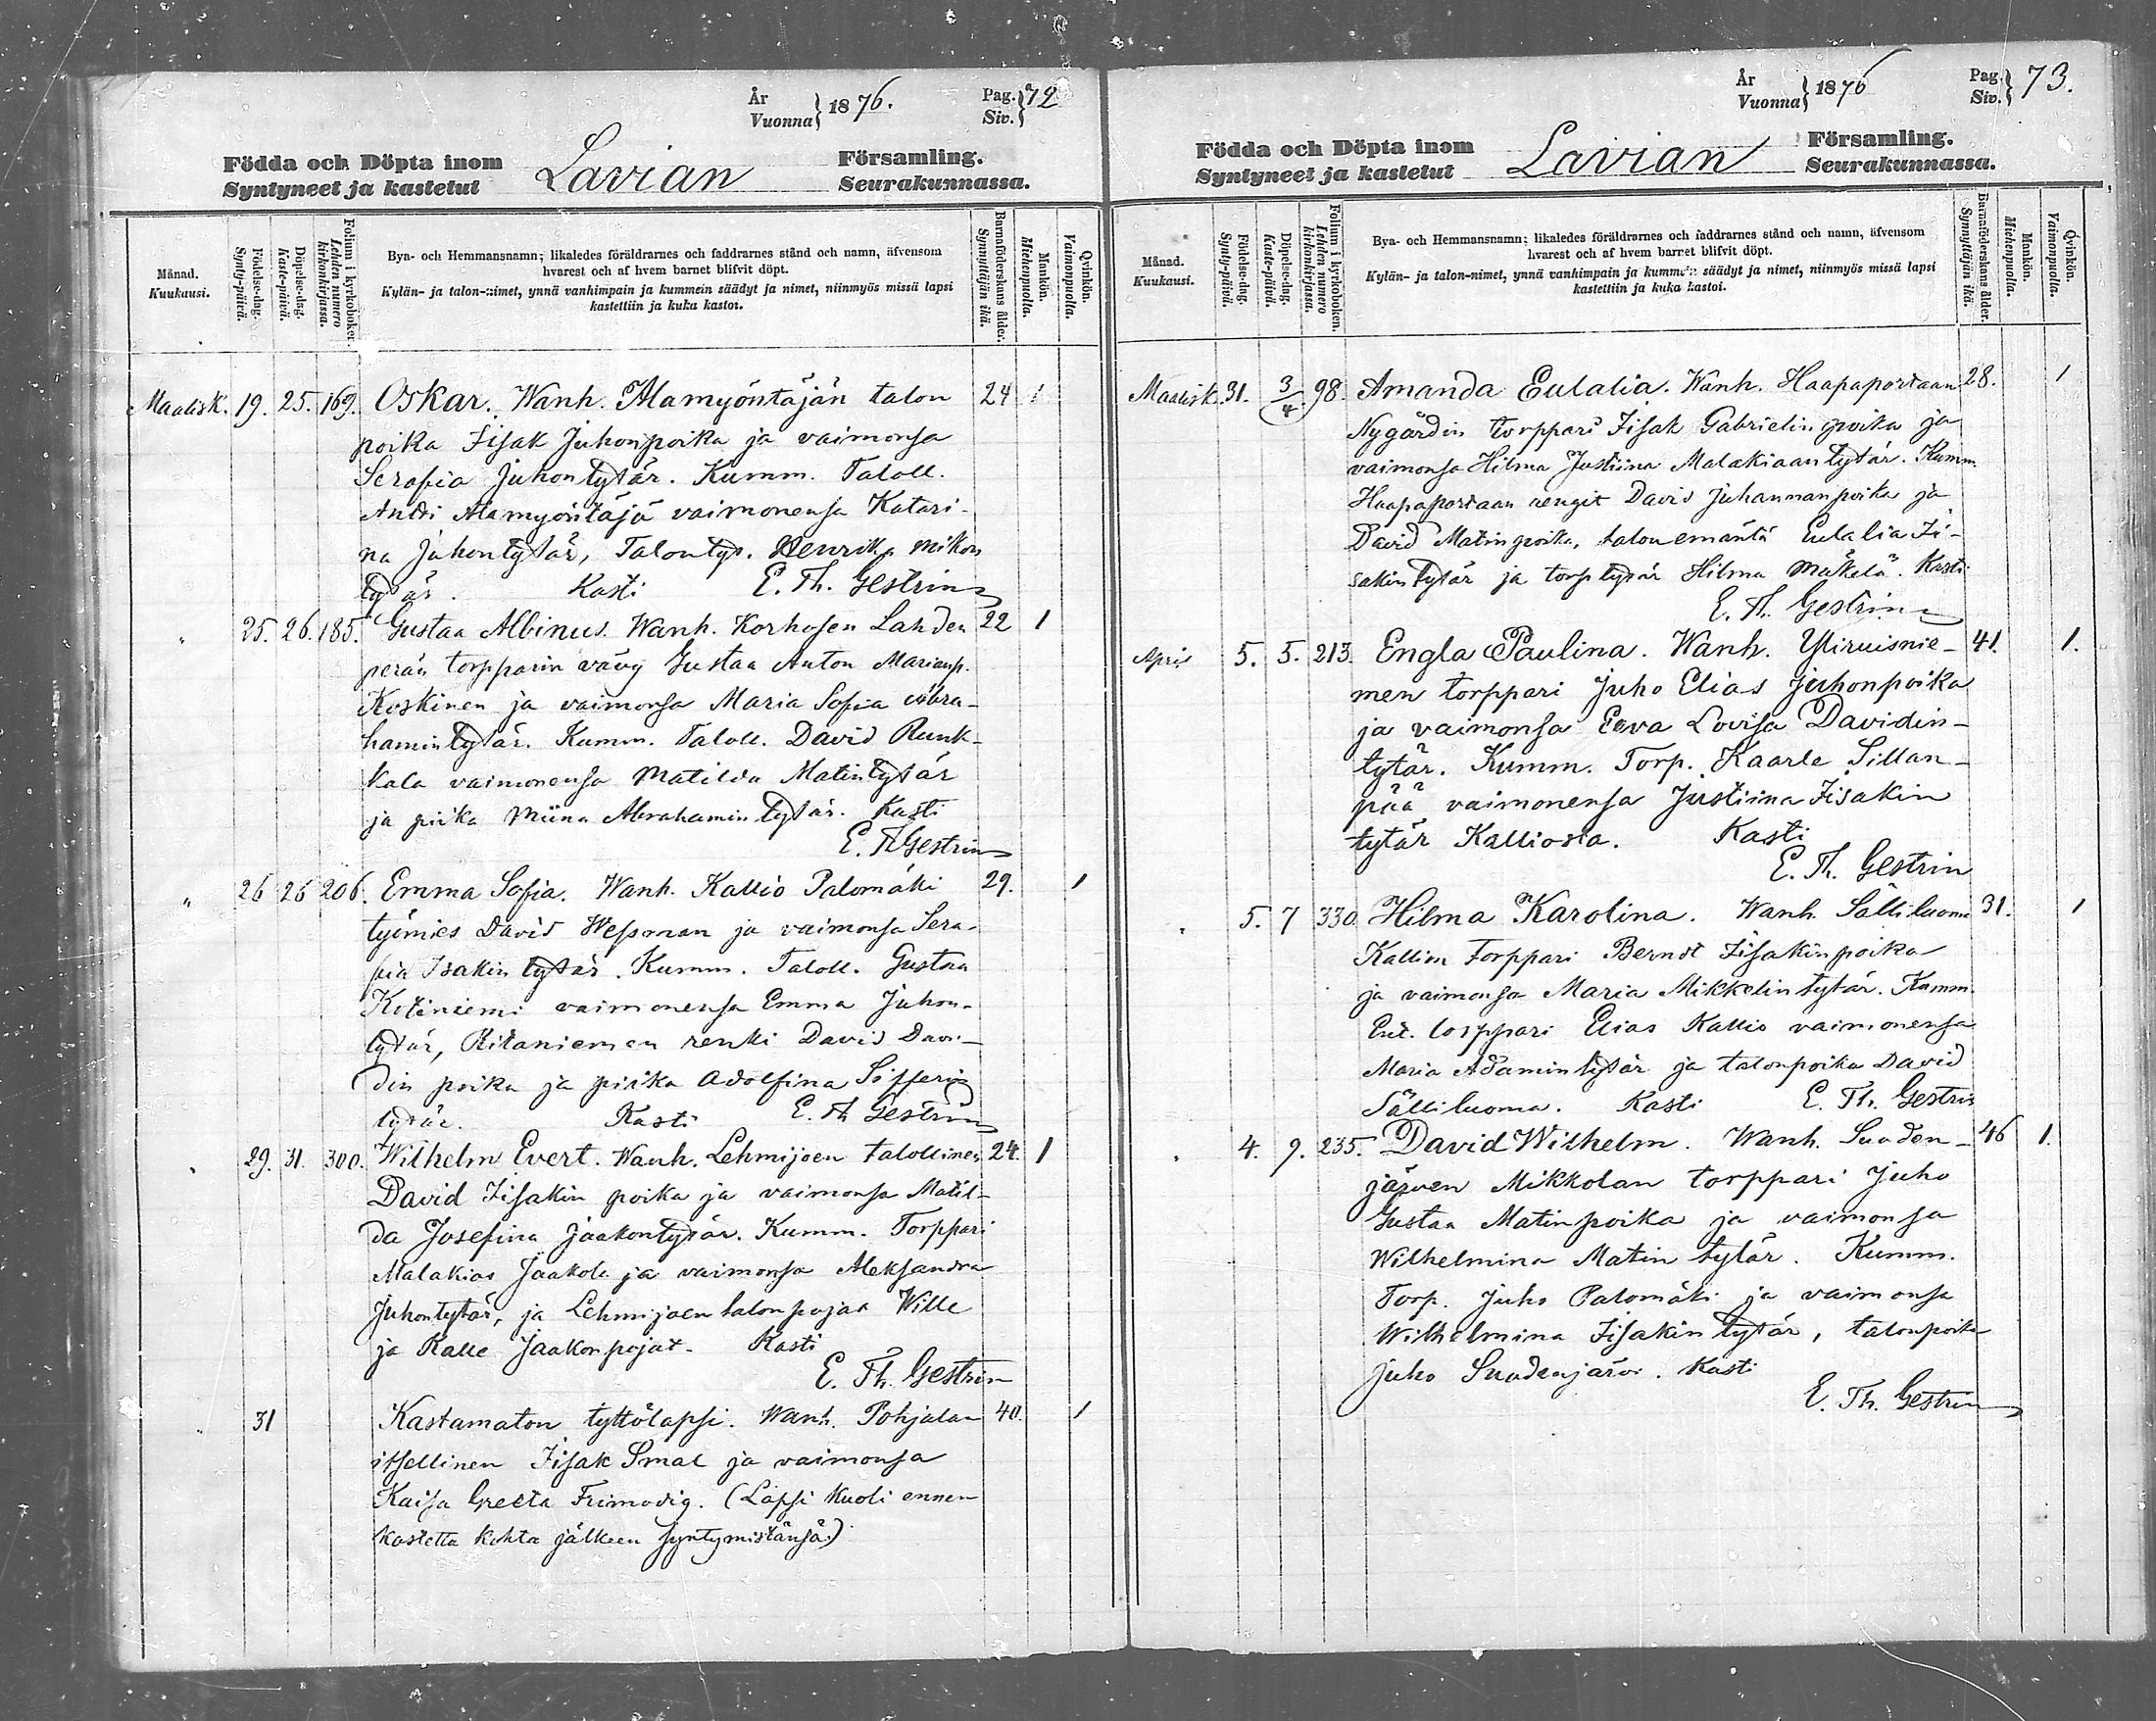 År
Vuonna } 1876.
Pag.
Siv. } 72
Födda och Döpta inom
Syntyneet ja kastetut
Lavian
Församling.
Seurakunnassa.
Månad.
Kuukausi.
Födelse-dag.
Synty-päivä.
Döpelse-dag.
Kaste-päivä.
Folium i kyrkoboken.
Lehden numero kirkonkirjassa.
Bya- och Hemmansnamn; likaledes föräldrarnes och faddrarnes stånd och namn, äfvensom
hvarest och af hvem barnet blifvit döpt.
Kylän- ja talon-nimet, ynnä vanhimpain ja kummein säädyt ja nimet, niinmyös missä lapsi
kastettiin ja kuka kastoi.
Barnaföderskans ålder.
Synnyttäjän ikä.
Mankön.
Miehenpuolta.
Qvinkön.
Vaimonpuolta.
Maalisk. 19. 25. 169. Oskar. Wanh. Alamyöntäjän talon 24 1
poika Iisak Juhonpoika ja vaimonsa
Serafia Juhontytär. Kumm. Taloll.
Antti Alamyöntäjä vaimonensa Katari-
na Juhontytär, Talontyt. Henrika Mikon
tytär. Kasti E. Th. Gestrin
" 25. 26. 185. Gustaa Albinus. Wanh. Korhosen Lahden 22 1
perän torpparin vävy Gustaa Anton Marianp.
Koskinen ja vaimonsa Maria Sofia Abra-
hamintytär. Kumm. Taloll. David Runk-
kala vaimonensa Matilda Matintytär
ja piika Miina Abrahamintytär. Kasti
E. Th Gestrin
" 26 26 206. Emma Sofia. Wanh. Kallio Palomäki 29. 1
työmies David Wessman ja vaimonsa Sera-
fia Isakintytär. Kumm. Taloll. Gustaa
Kitiniemi vaimonensa Emma Juhon-
tytär, Ritaniemen renki David Davi-
din poika ja piika Adolfina Sifferin
tytär. Kasti E. Th Gestrin
" 29. 31. 300. Wilhelm Evert. Wanh. Lehmijoen talollinen 24. 1
David Iisakin poika ja vaimonsa Matil-
da Josefina Jaakontytär. Kumm. Torppari
Malakias Jaakola ja vaimonsa Aleksandra
Juhontytär, ja Lehmijoen talonpojat Wille
ja Kalle Jaakonpojat. Kasti
E. Th. Gestrin
" 31 Kastamaton tyttölapsi. Wanh. Pohjalan 40. 1
itsellinen Iisak Smal ja vaimonsa
Kaisa Greeta Frimodig. (Lapsi kuoli ennen
kastetta kohta jälkeen syntymistänsä.)
År
Vuonna } 1876
Pag.
Siv. } 73.
Födda och Döpta inom
Syntyneet ja kastetut
Lavian
Församling.
Seurakunnassa.
Månad.
Kuukausi.
Födelse-dag.
Synty-päivä.
Döpelse-dag.
Kaste-päivä.
Folium i kyrkoboken.
Lehden numero kirkonkirjassa.
Bya- och Hemmansnamn; likaledes föräldrarnes och faddrarnes stånd och namn, äfvensom
hvarest och af hvem barnet blifvit döpt.
Kylän- ja talon-nimet, ynnä vanhimpain ja kummein säädyt ja nimet, niinmyös missä lapsi
kastettiin ja kuka kastoi.
Barnaföderskans ålder.
Synnyttäjän ikä.
Mankön.
Miehenpuolta.
Qvinkön.
Vaimonpuolta.
Maalisk. 31. 3/4 98. Amanda Eulalia. Wanh. Haapaportaan 28. 1
Nygårdin torppari Iisak Gabrielin poika ja
vaimonsa Hilma Justiina Malakiaantytär. Kumm.
Haapaportaan rengit David Juhannanpoika ja
David Matinpoika, talonemäntä Eulalia Ii-
sakintytär ja torptytär Hilma Mäkelä. Kasti
E. Th. Gestrin
April 5. 5. 213. Engla Paulina. Wanh. Yliruisnie- 41. 1.
men torppari Juho Elias Juhonpoika
ja vaimonsa Eeva Lovisa Davidin-
tytär. Kumm. Torp. Kaarle Sillan-
pää vaimonensa Justiina Iisakin
tytär Kalliosta. Kasti
E. Th. Gestrin
" 5. 7 330. Hilma Karolina. Wanh. Sälliluoma 31. 1
Kallion torppari Berndt Iisakinpoika
ja vaimonsa Maria Mikkelintytär. Kumm.
Ent. torppari Elias Kallio vaimonensa
Maria Adamintytär ja talonpoika David
Sälliluoma. Kasti E. Th. Gestrin
" 4. 9. 235. David Wilhelm. Wanh. Suoden- 46 1.
järven Mikkolan torppari Juho
Gustaa Matinpoika ja vaimonsa
Wilhelmina Matin tytär. Kumm.
Torp. Juho Palomäki ja vaimonsa
Wilhelmina Iisakintytär, talonpoika
Juho Suodenjärvi. Kasti
E. Th. Gestrin